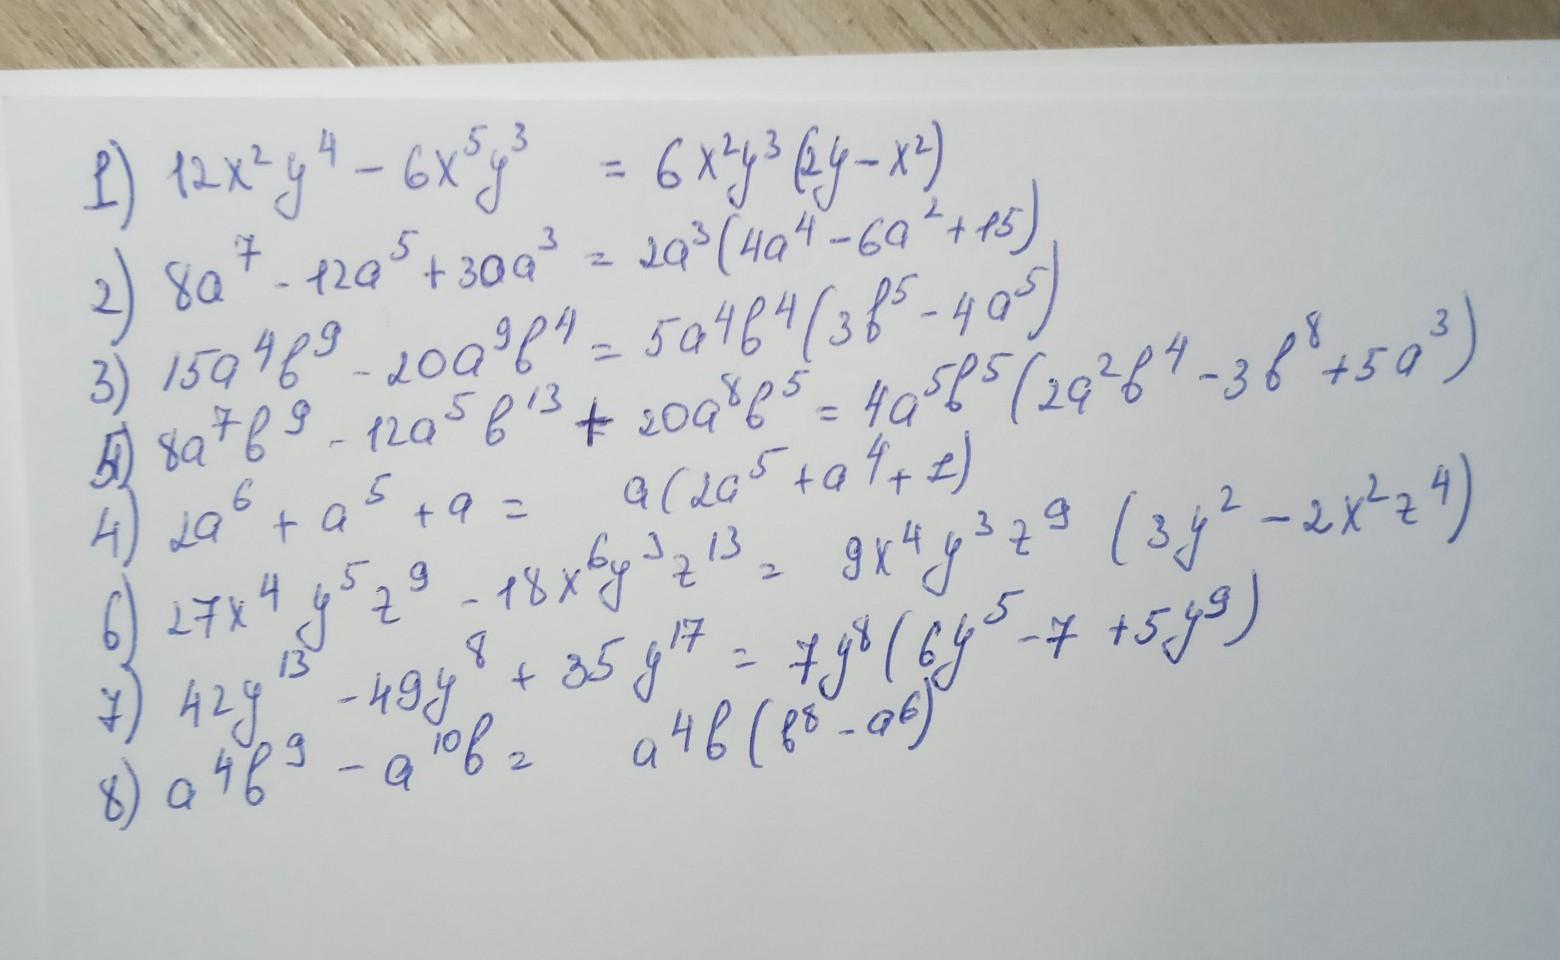 1) 12x² y⁴ - 6x⁵y³ = 6x²y³(2y - x²)
2) 8a⁷ - 12a⁵ + 30a³ = 2a³(4a⁴ - 6a² + 15)
3) 15a⁴b⁹ - 20a⁹b⁴ = 5a⁴b⁴(3b⁵ - 4a⁵)
5) 8a⁷b⁹ - 12a⁵b¹³ + 20a⁸b⁵ = 4a⁵b⁵(2a²b⁴ - 3b⁸ + 5a³)
4) 2a⁶ + a⁵ + a = a(2a⁵ + a⁴ + 1)
6) 27x⁴y⁵z⁹ - 18x⁶y³z¹³ = 9x⁴y³z⁹ (3y² - 2x²z⁴)
7) 42y¹³ - 49y⁸ + 35y¹⁷ = 7y⁸(6y⁵ - 7 + 5y⁹)
8) a⁴b⁹ - a¹⁰b = a⁴b(b⁸ - a⁶)